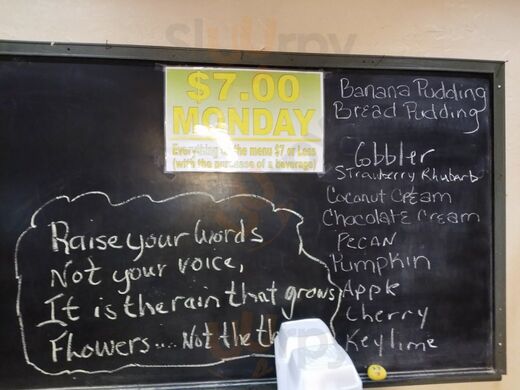 Slurpy
$7.00
MONDAY
Everything on the menu $7 or Less
(with the purchase of a beverage)
Banana Pudding
Bread Pudding
Cobbler
Strawberry Rhubarb
Coconut Cream
Chocolate Cream
Pecan
Pumpkin
Apple
Cherry
Keylime
Raise your words
Not your voice,
It is the rain that grows
Fhowers.... Not the